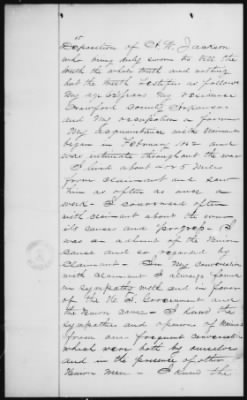 Deposition of H. W. Jackson
who being duly sworn to tell the
truth the whole truth and nothing
but the truth testifies as follows
My age 52 years My residence
Crawford County Arkansas
and My occupation a farmer
My acquaintance with claimant
began in February 1862 and
was intimate throughout the war
I lived about miles
from claimant and saw
him as often as once a
week - I conversed often
with claimant about the war
its causes and progress - I
was an adherent of the Union
cause and so regarded by
claimant - In my conversations
with claimant I always found
in sympathy with and in favor
of the U. S. Government and
the Union cause - I the
sympathies and opinions of
from our frequent conversations
which were both by ourselves
and in the presence of other
Union men - I knew the